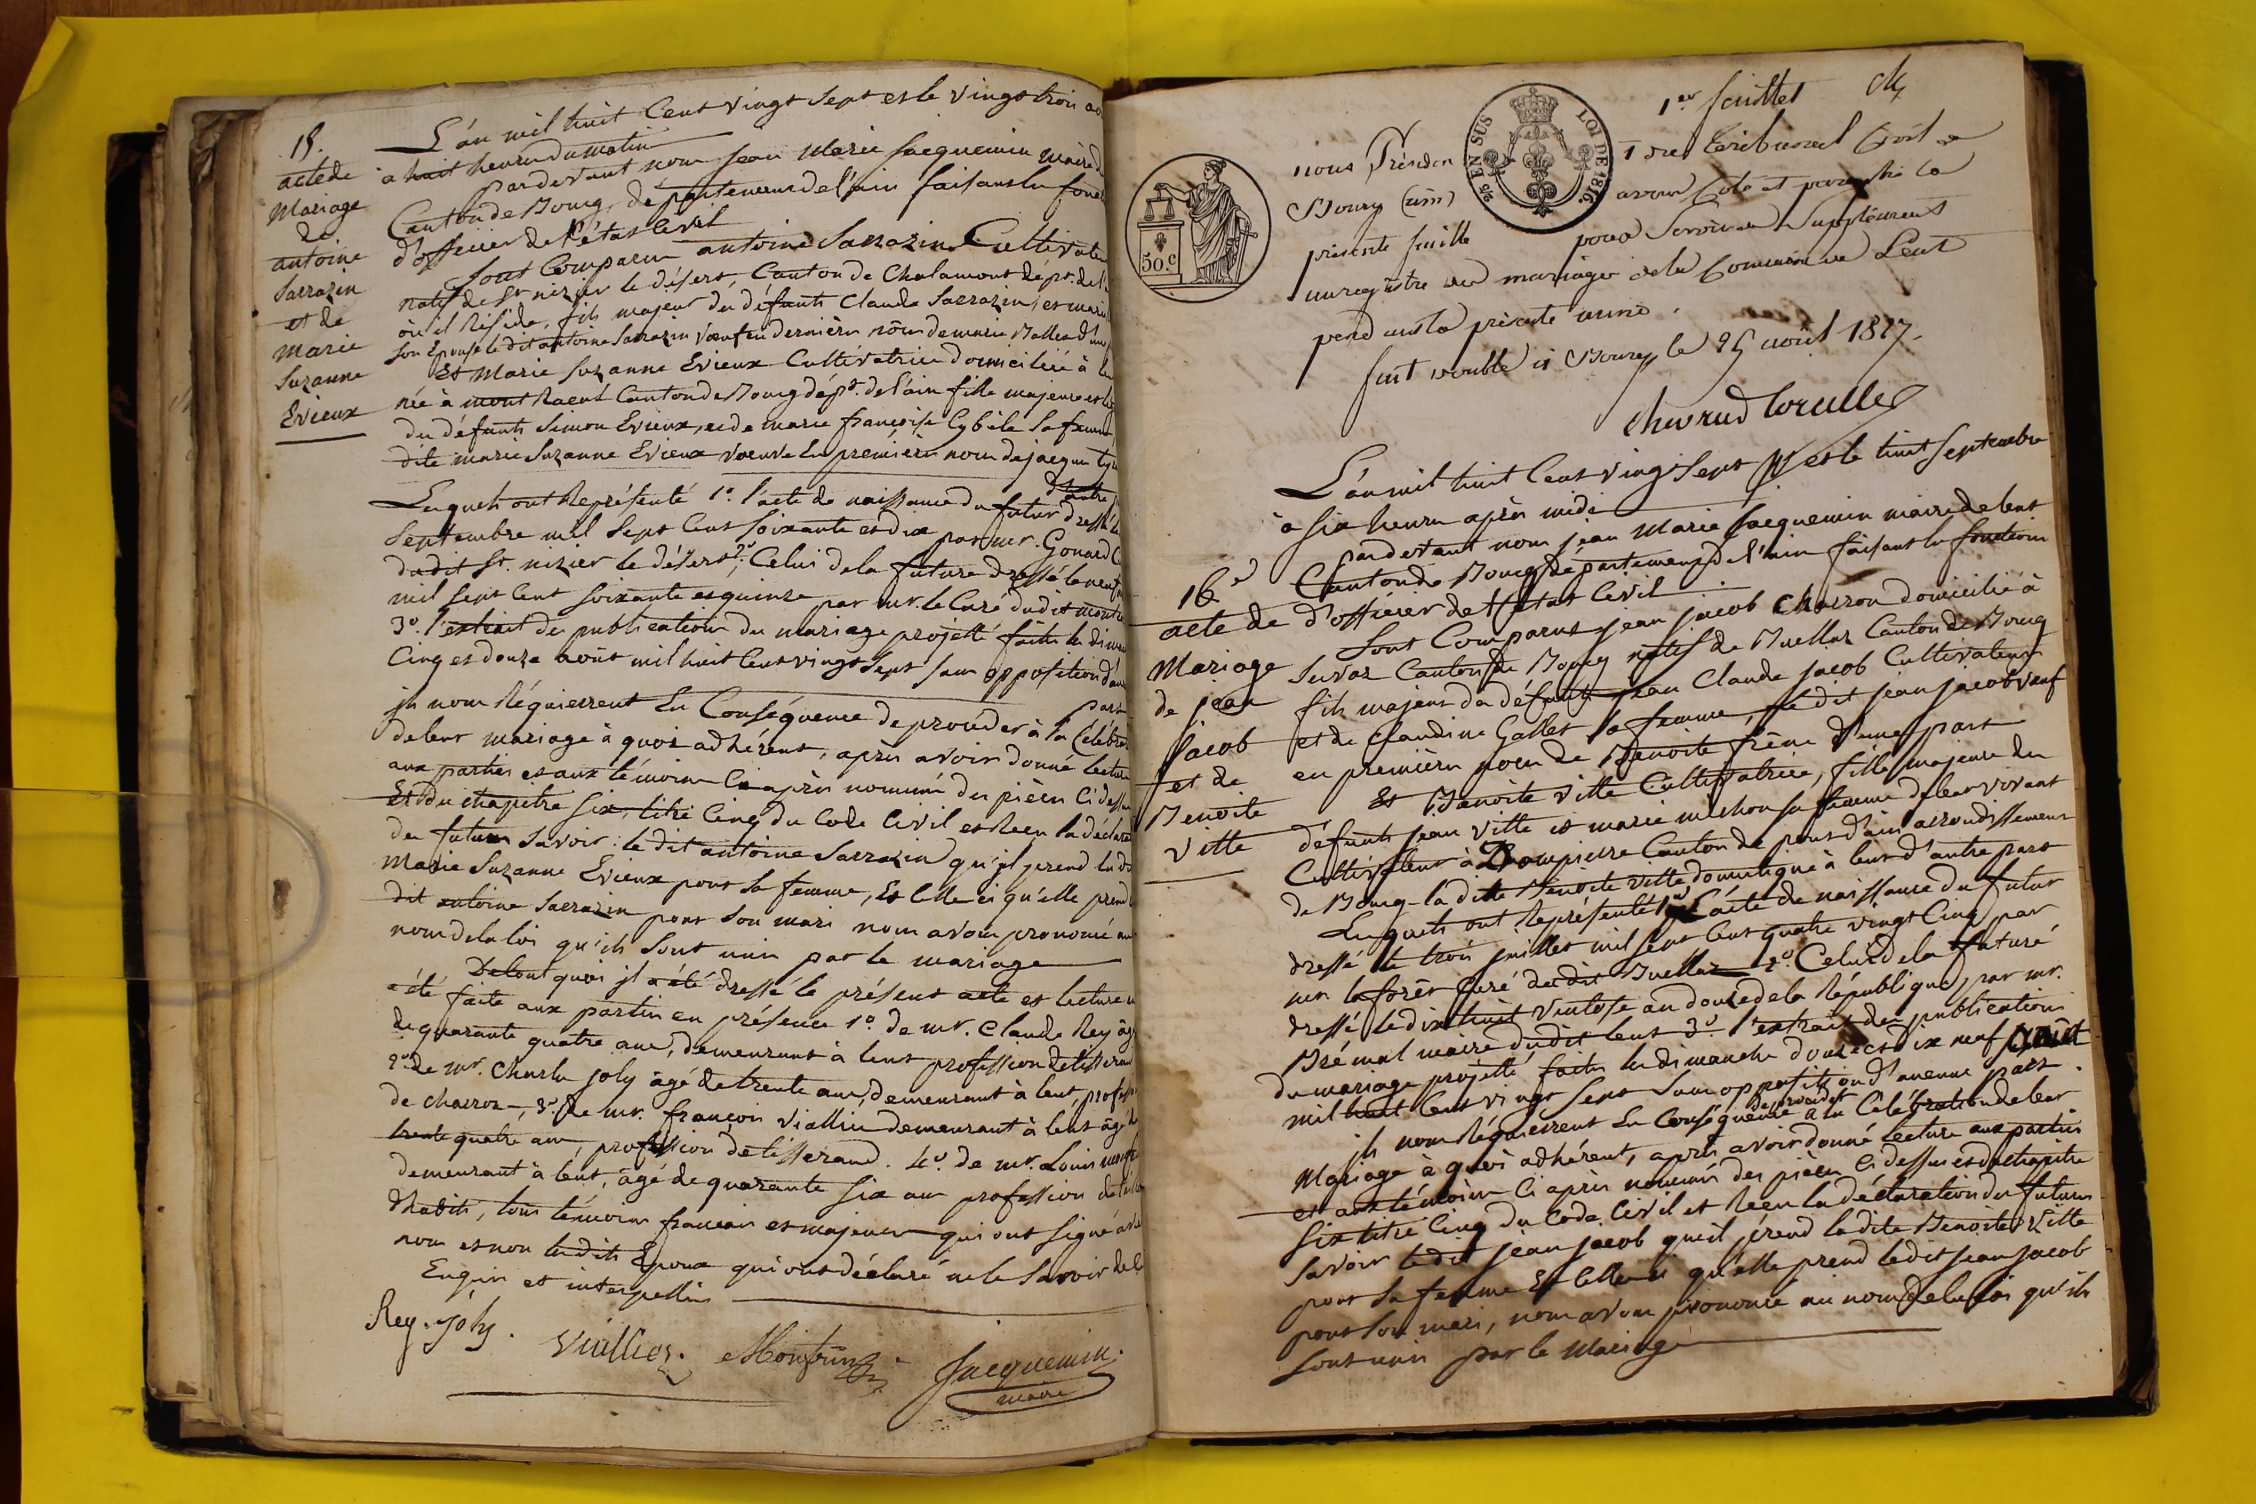 15.
acte de
Mariage
de
antoine
Sarrazin
et de
Marie
Suzanne
Evieux
L'an mil huit Cent vingt Sept et le vingt trois
à huit heures du matin
pardevant nous jean Marie jacquemin maire de
Canton de Bourg, département de l'ain faisant les fonct
d'officier de l'état Civil
Sont Comparus antoine Sarrazin Cultivateur
natif de St. nizier le désert, Canton de Chalamont dépt. de l'
où il Réside, fils majeur du défunt Claude Sarrazin, et marie
son Epouse le dit antoine Sarrazin veuf en dernières nôces de marie
Et Marie Suzanne Evieux Cultivatrice domiciliée à
née à mont Canton de Bourg dépt. de l'ain fille majeure
du défunt Simon Evieux, et de marie françoise Cybèle Sa femme
dite marie Suzanne Evieux veuve En premières noces de jacques
d'autre
Lesquels ont Représenté 1°. l'acte de naissance du futur dressé le
Septembre mil Sept Cent Soixante et dix par mr. Gonard
dudit St. nizier le désert, 2° Celui de la future dressé le neuf
mil Sept Cent Soixante et quinze par mr. le Curé dudit
3°. l'extrait des publications du mariage projetté faites les diman
Cinq et douze août mil huit Cent vingt Sept sans opposition d'au
part
ils nous Réquierrent En Conséquence de procéder à la Célébra
de leur mariage à quoi adhérent, après avoir donné lecture
aux parties et aux témoins Ci après nommés des pièces Ci dessus
Et du chapitre six, titre Cinq du Code Civil et Reçu la déclara
des futurs Savoir: le dit antoine Sarrazin qu'il prend la d
Marie Suzanne Evieux pour Sa femme, Et Celle ci qu'elle prend
dit antoine Sarrazin pour Son mari nous avons prononcé au
nom de la loi qu'ils Sont unis par le mariage
De tout quoi il a été dressé le présent acte et lecture
a été faite aux parties en présence 1°. de mr. Claude Rey âgé
de quarante quatre ans, demeurant à lent profession de tisserand
2° de mr. Charles joly âgé de trente ans, demeurant à lent, profess
de charron, 3°. de mr. françois Viallier demeurant à lent âgé de
trente quatre ans, profession de tisserand. 4°. de mr. Louis
demeurant à lent, âgé de quarante six ans profession de
d'habits, tous témoins français et majeurs qui ont signé avec
nous et non lesdits Epoux qui ont déclaré ne le Savoir de
Enquis et interpellés
Rey. joly. Viallier. Monfrin Jacquemin.
maire
1er feuillet
nous Président du tribunal Civil de
Bourg (ain) avons Coté et paraphé la
présente feuille pour Servir de Supplément
au registre des mariages de la Commune de Lent
pendant la présente année.
fait double à Bourg, le 25 août 1827.
50.c
2/5 EN SUS LOI DE 1816.
16e
acte de
Mariage
de jean
Jacob
et de
Benoite
Ville
L'an mil huit Cent vingt Sept et le huit Septembre
à Six heures après midi
pardevant nous jean Marie jacquemin maire de lent
Canton de Bourg département de l'ain faisant les fonctions
d'officier de l'état Civil
Sont Comparus jean jacob Charron domicilié à
Servaz Canton de Bourg natif de Buellaz Canton de Bourg
fils majeur du défunt jean Claude jacob Cultivateur
et de Claudine Gallet Sa femme, le dit jean jacob veuf
en premières noces de Benoite frêne d'une part
Et Benoite Ville Cultivatrice, fille majeure des
défunts jean Ville et marie michon sa femme de leur vivant
Cultivateurs à Dompierre Canton de pont d'ain arrondissement
de Bourg. la dite Benoite Ville, domestique à lent d'autre part
Lesquels ont Représenté 1° L'acte de naissance du futur
dressé le trois juillet mil sept Cent quatre vingt Cinq par
mr. laforêt Curé dudit Buellaz 2° Celui de la future
dressé le dix huit Ventose an douze de la République, par mr.
Brémal maire dudit lent 3° l'extrait des publications
du mariage projetté faites les dimanche douze et dix neuf août
mil huit Cent vingt Sept Sans opposition d'aucune part.
ils nous Réquierrent En Conséquence de procéder à la Célébration de leur
Mariage à quoi adhérent, après avoir donné lecture aux parties
et aux témoins Ci après nommés des pièces Ci dessus et du chapitre
Six titre Cinq du Code Civil et Reçu la déclaration des futurs
Savoir le dit jean jacob qu'il prend la dite Benoite Ville
pour Sa femme Et Celle ci qu'elle prend le dit jean jacob
pour Son mari, nous avons prononcé au nom de la loi qu'ils
Sont unis par le Mariage